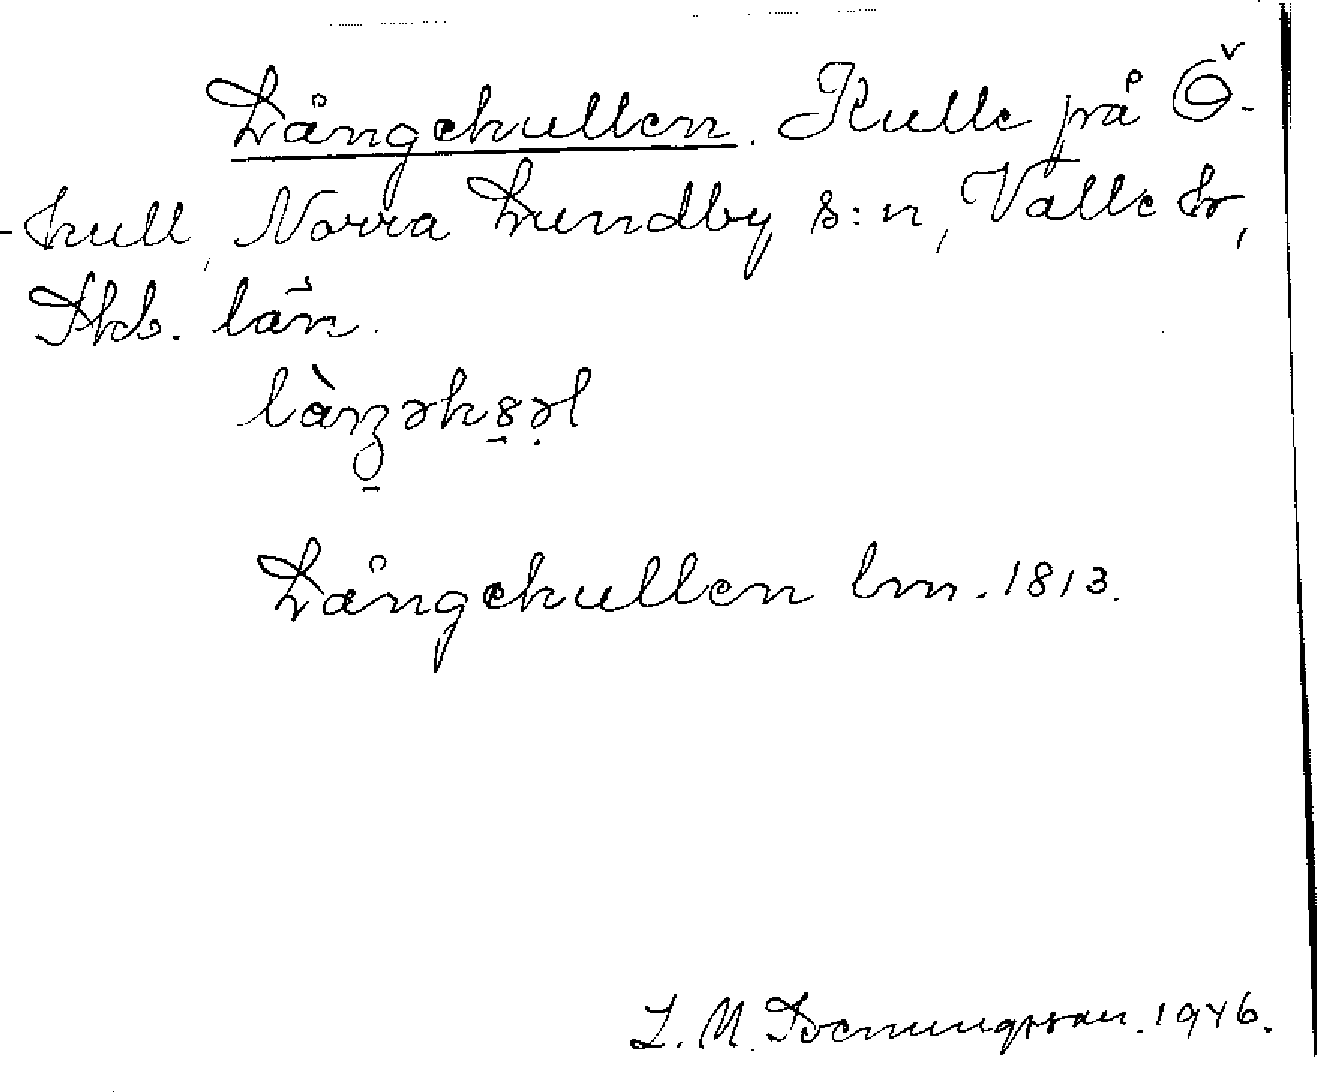 Långekullen. Kulle på Ö-
-kull, Norra Lundby s:n, Valle hr,
Skb. län.
Långekullen lm. 1813.
1946.